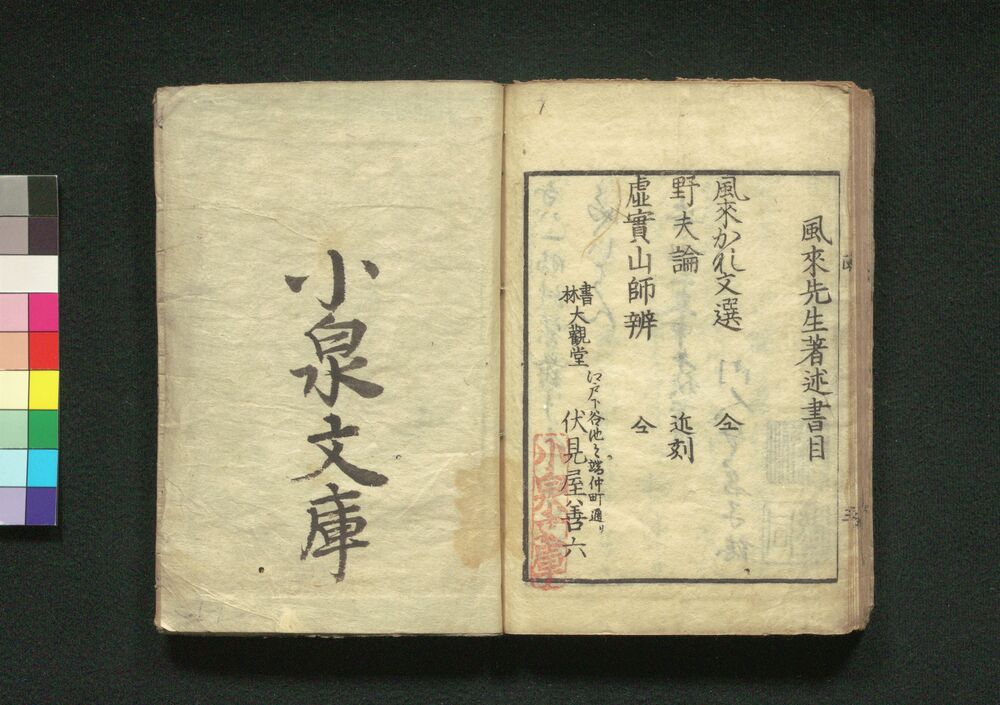 風來先生著述書目
風來かれ文選 仝
野夫論 近刻
虚實山師辨 仝
書林 大觀堂
江戸下谷池之端仲町通り
伏見屋善六
小泉文庫
小泉文庫